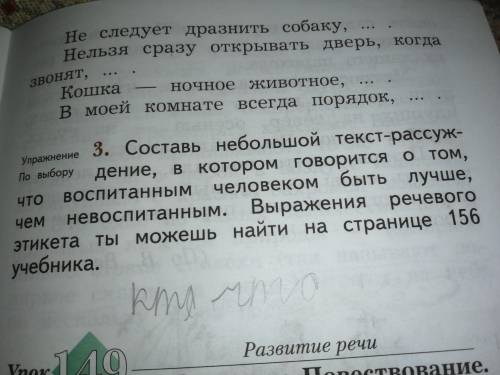 Не следует дразнить собаку, ... .
Нельзя сразу открывать дверь, когда
звонят, ... .
Кошка — ночное животное, ... .
В моей комнате всегда порядок, ... .
Упражнение 3. Составь небольшой текст-рассуж-
По выбору дение, в котором говорится о том,
что воспитанным человеком быть лучше,
чем невоспитанным. Выражения речевого
этикета ты можешь найти на странице 156
учебника.
что
Развитие речи
Урок 149 Повествование.